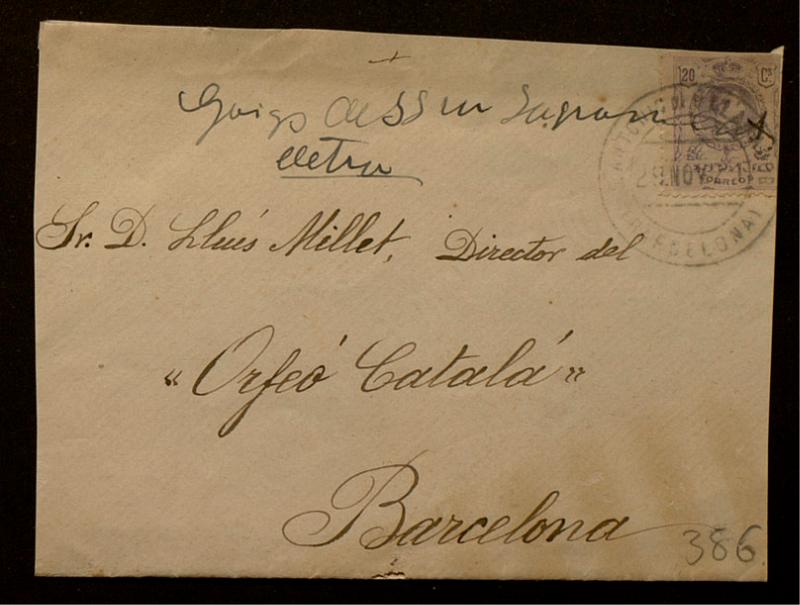 Goigs del SSm Sagrament
lletra
20 Cs
CORREOS
28 NOV
(BARCELONA)
Sr. D. Lluís Millet, Director del
«Orfeó Catalá»
Barcelona
386